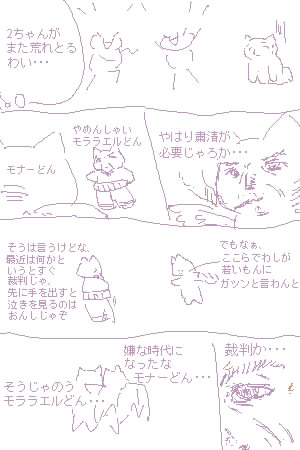 2ちゃんが
また荒れとる
わい・・・
やはり粛清が
必要じゃろか・・・
やめんしゃい
モララエルどん
モナーどん
でもなぁ、
ここらでわしが
若いもんに
ガツンと言わんと
そうは言うけどな、
最近は何かと
いうとすぐ
裁判じゃ、
先に手を出すと
泣きを見るのは
おんしじゃぞ
裁判か・・・
嫌な時代に
なったな
モナーどん・・・
そうじゃのう
モララエルどん・・・